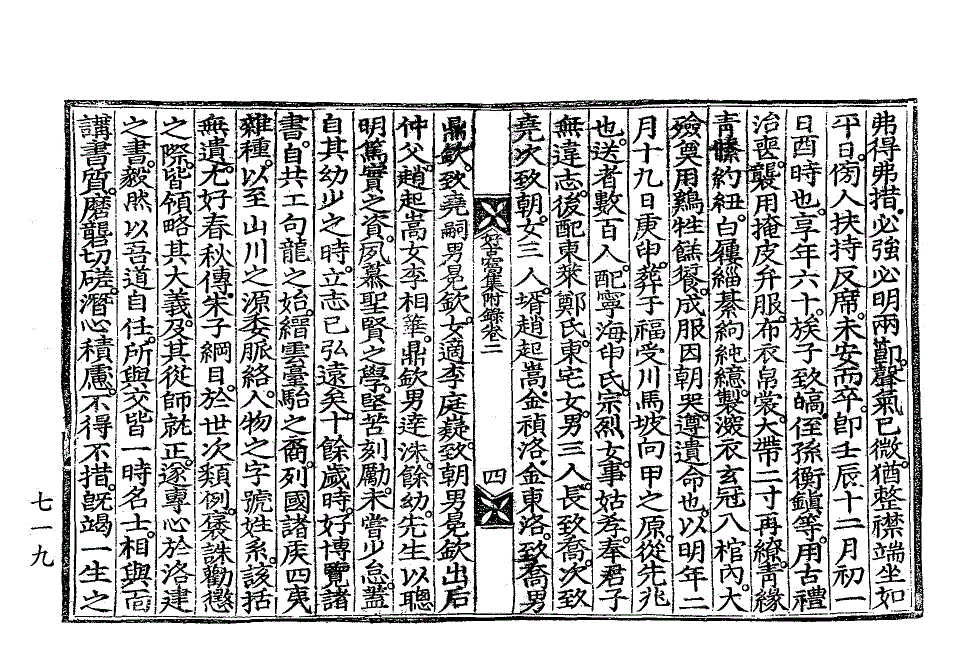 弗得弗措必強必明兩節聲氣已微猶整襟端坐如
平日傍人扶持反席未安而卒卽壬辰十二月初一
日酉時也享年六十族子致皜侄孫衡鎭等用古禮
治喪襲用掩皮弁服布衣帛裳大帶二寸再繚靑緣
靑絛約紐白屨緇綦絇純繶製深衣玄冠入棺內大
殮奠用鷄牲饎餈成服因朝哭遵遺命也以明年二
月十九日庚申葬于福受川馬坡向甲之原從先兆
也送者數百人配寧海申氏宗烈女事姑孝奉君子
無違志後配東萊鄭氏東宅女男三人長致喬次致
堯次致朝女三人壻趙起嵩金禎洛金東洛致喬男
好古窩集附錄卷二
四
鼎欽致堯嗣男晃欽女適李庭嶷致朝男晃欽出后
仲父趙起嵩女李相華鼎欽男達洙餘幼先生以聰
明篤實之資夙慕聖賢之學堅苦刻勵未嘗少怠蓋
自其幼少之時立志已弘遠矣十餘歲時好博覽諸
書自共工句龍之始縉雲臺駘之裔列國諸侯四夷
雜種以至山川之源委脈絡人物之字號姓系該括
無遺尤好春秋傳朱子綱目於世次類例褒誅勸懲
之際皆領略其大義及其從師就正遂專心於洛建
之書毅然以吾道自任所與交皆一時名士相與面
講書質磨礱切磋潛心積慮不得不措旣竭一生之
七一九